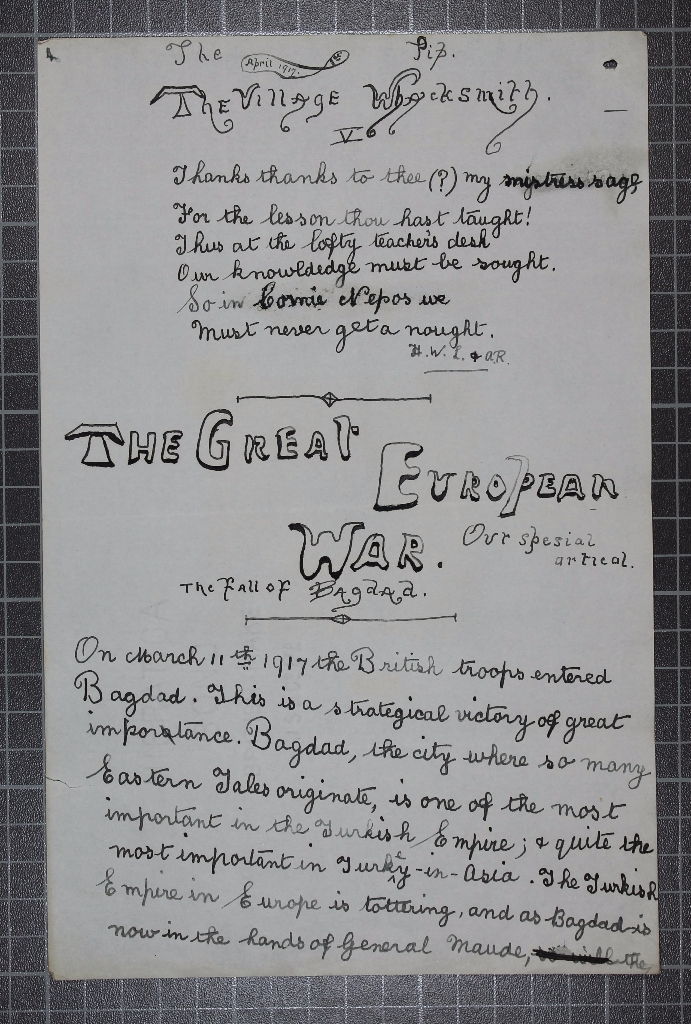 4
The April 1917. Pip.
The Village Whacksmith.
V
Thanks thanks to thee (?) my mistress sage
For the lesson thou hast taught!
Thus at the lofty teacher's desk
Our knowldedge must be sought.
So in Cornie Nepos we
Must never get a nought.
H.W.L. & AR.
THE GREAT
EUROPEAN
WAR. Our spesial
artical.
The Fall of Bagdad.
On March 11th 1917 the British troops entered
Bagdad. This is a strategical victory of great
importance. Bagdad, the city where so many
Eastern Tales originate, is one of the most
important in the Turkish Empire; & quite the
most important in Turkey-in-Asia. The Turkish
Empire in Europe is tottering, and as Bagdad is
now in the hands of General Maude, the